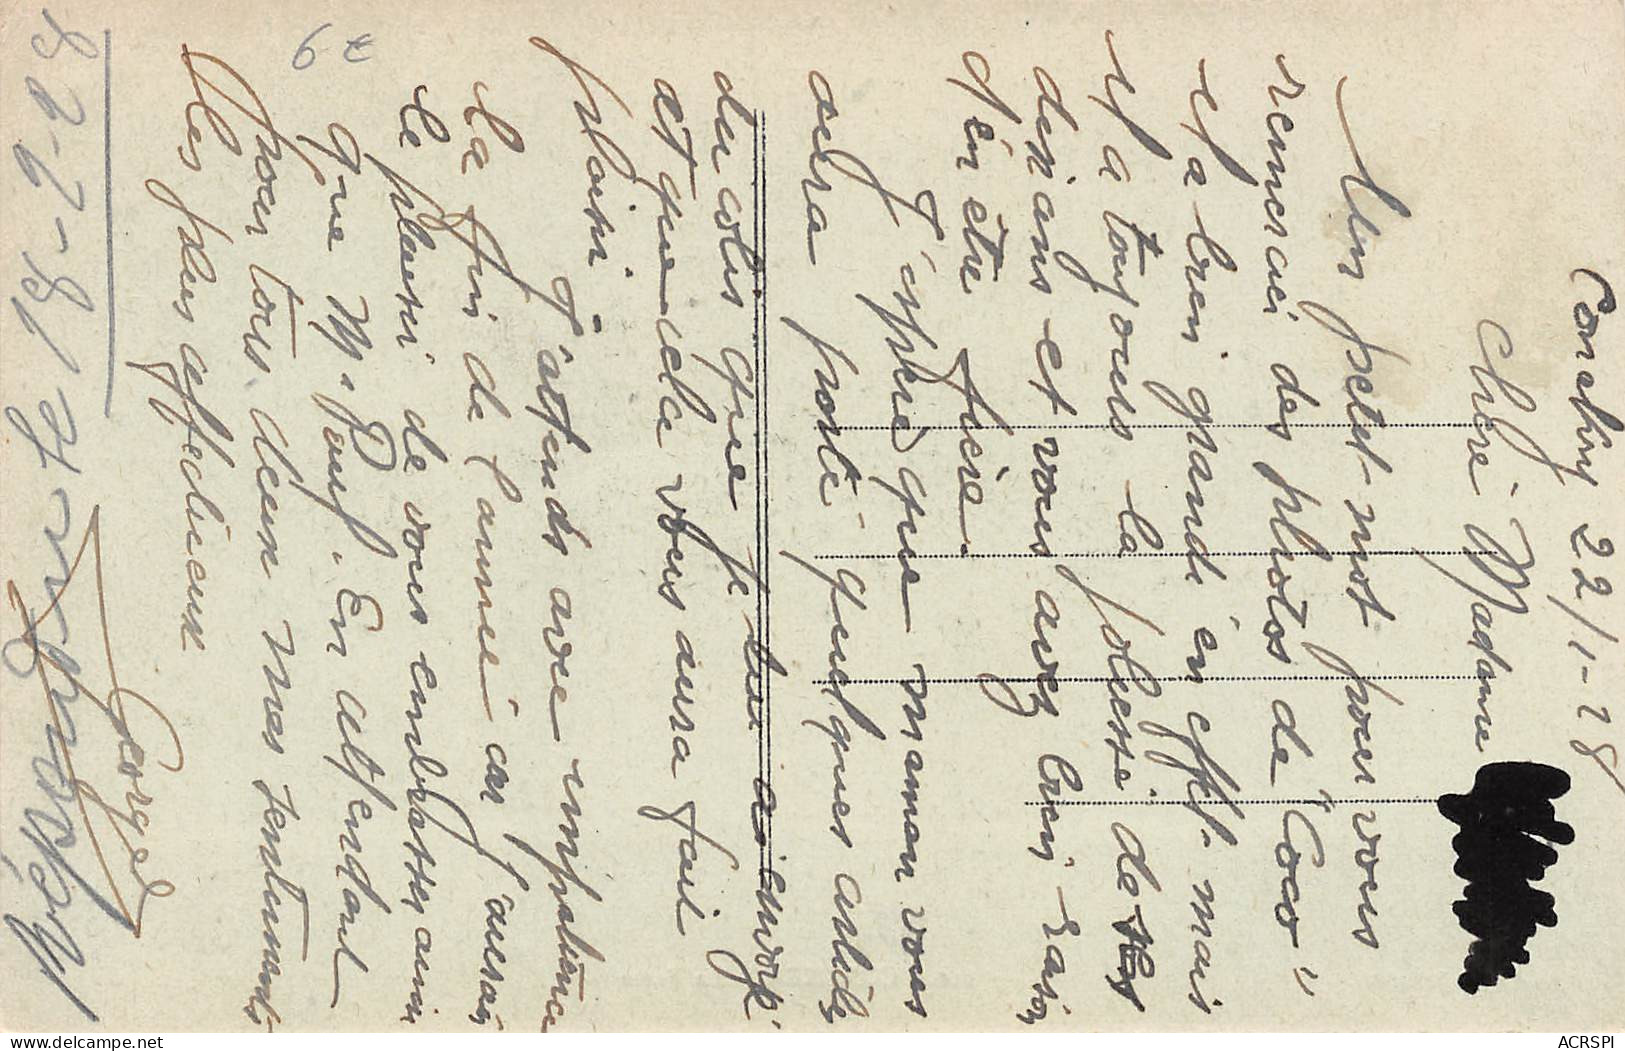 Conakry 22/1-28
Chère Madame
Un petit mot pour vous
remercier des photos de "Coco"
il a bien grandi en effet mais
il a toujours la joliesse de ses
dix ans et vous avez bien raison
d'en être fière.
J'espère que maman vous
aura porté quelques articles
du colis que je lui ai envoyé
et que cela vous aura fait
plaisir.
J'attends avec impatience
la fin de l'année car j'aurai
le plaisir de vous embrasser ainsi
que M. Pouf. En attendant
pour tous deux mes sentiments
les plus affectueux
Georges
Répondu le 18-2-28
www.delcampe.net
ACRSPI